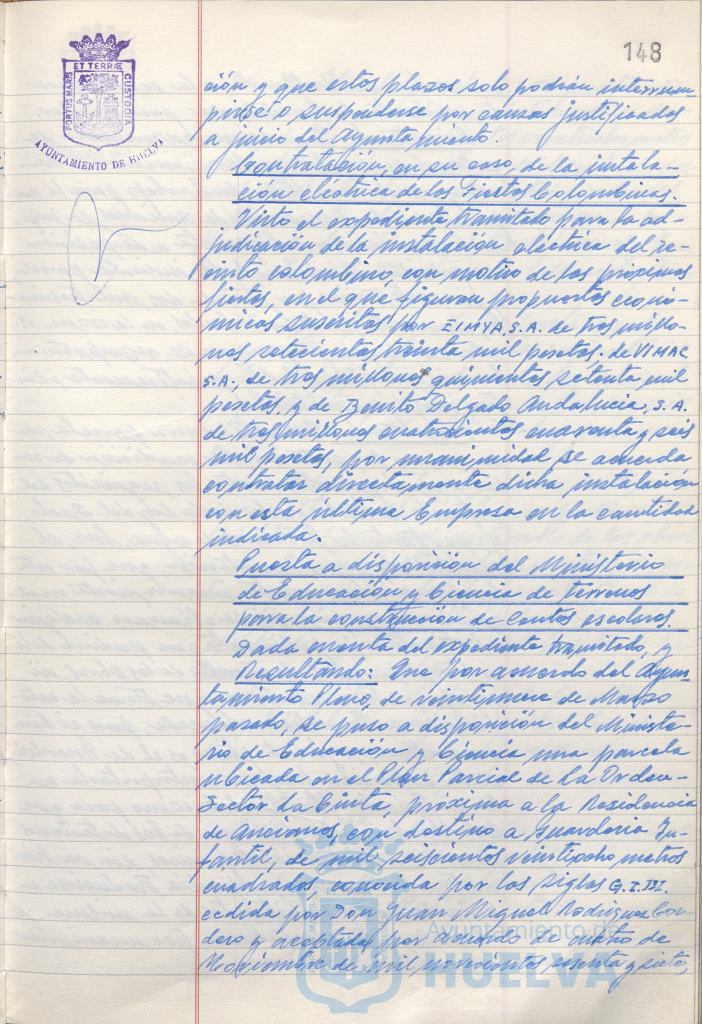 148
PORTUS MARIS ET TERRÆ CUSTODIA
AYUNTAMIENTO DE HUELVA
ción y que estos plazos solo podrán interrum-
pirse o suspenderse por causas justificadas
a juicio del Ayuntamiento.
Contratación, en su caso, de la instala-
ción eléctrica de las Fiestas Colombinas.
Visto el expediente tramitado para la ad-
judicación de la instalación eléctrica del re-
cinto colombino, con motivo de las próximas
fiestas, en el que figuran propuestas econó-
micas suscritas por EIMYA, S.A. de tres millo-
nes setecientas treinta mil pesetas. de VIMAC
S.A., de tres millones quinientas setenta mil
pesetas y de Benito Delgado Andalucia, S.A.
de tres millones cuatrocientas cuarenta y seis
mil pesetas, por unanimidad se acuerda
contratar directamente dicha instalación
con esta última Empresa en la cantidad
indicada.
Puesta a disposición del Ministerio
de Educación y Ciencia de terrenos
para la construcción de Centos escolares.
Dada cuenta del expediente tramitado, y
Resultando: Que por acuerdo del Ayun-
tamiento Pleno, de veintinueve de Marzo
pasado, se puso a disposición del Ministe-
rio de Educación y Ciencia una parcela
ubicada en el Plan Parcial de La Orden-
Sector La Cinta, próxima a la Residencia
de Ancianos, con destino a Guardería In-
fantil, de mil seiscientos veintiocho metros
cuadrados, conocida por las siglas G.I.III.
cedida por Don Juan Miguel Rodríguez Cor-
dero y aceptada por acuerdo de cuatro de
Noviembre de mil novecientos sesenta y siete,
Ayuntamiento de
HUELVA